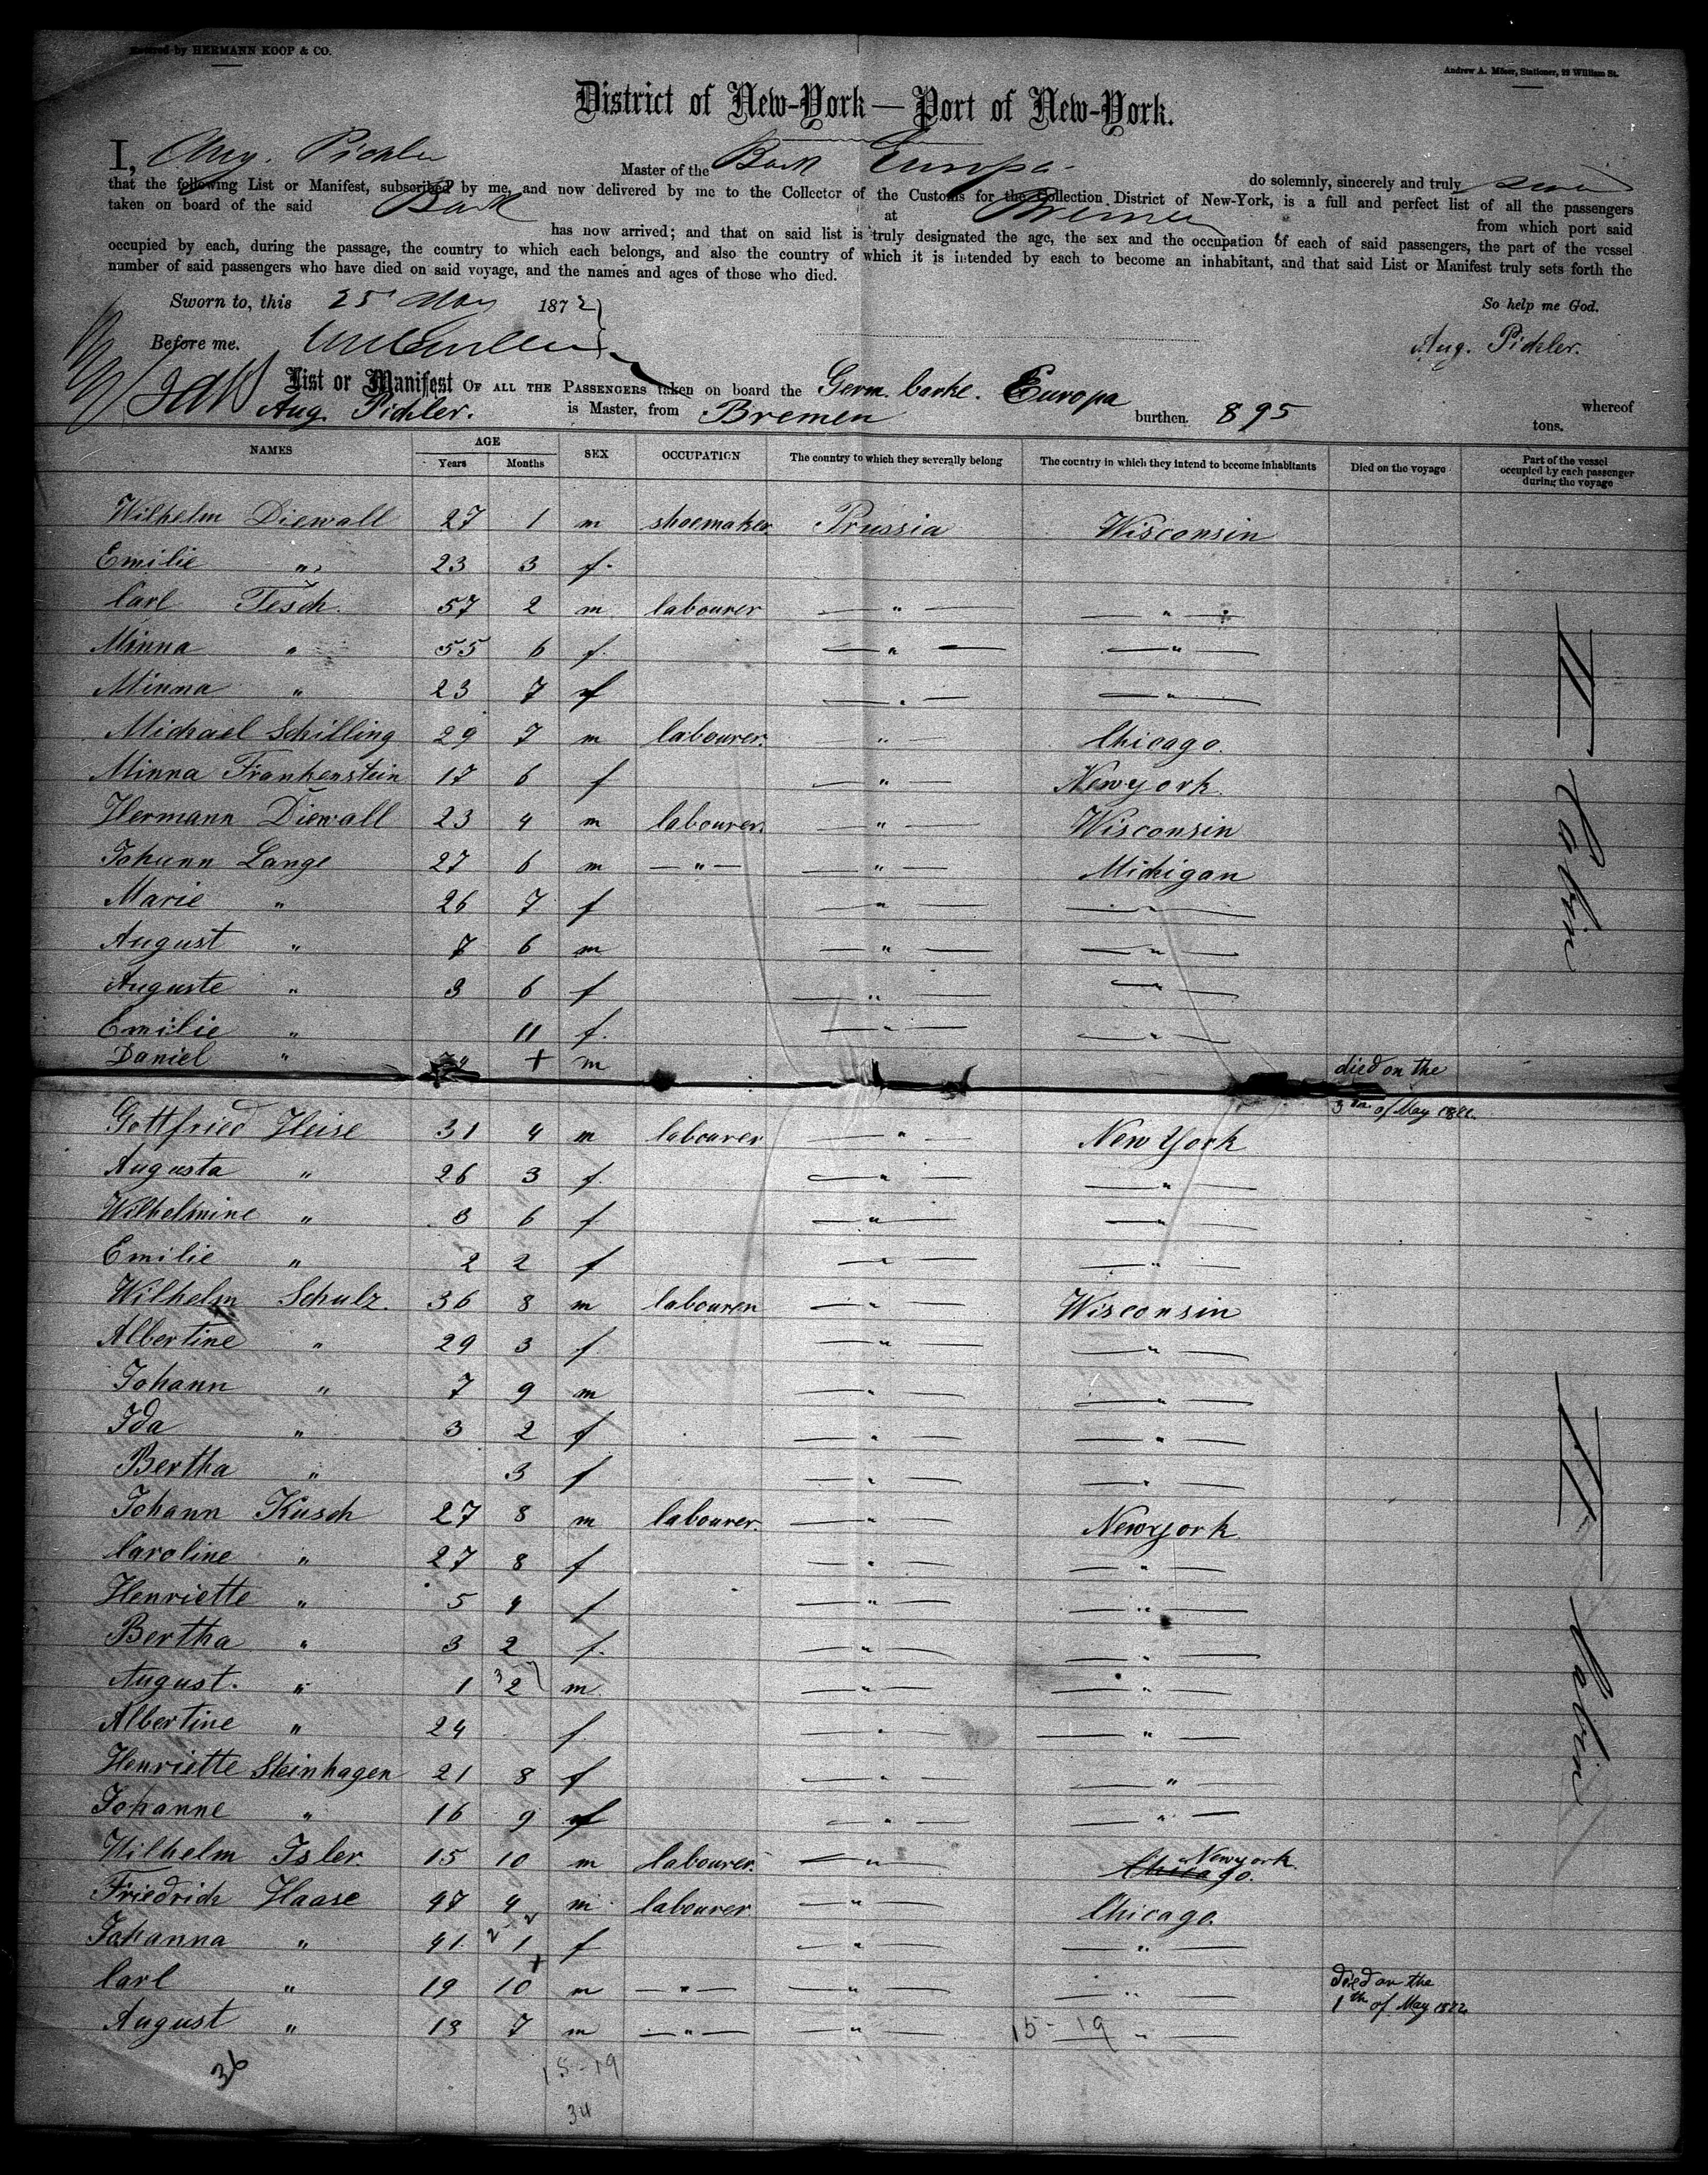 Entered by HERMANN KOOP & CO.
Andrew A. Möser, Stationer, 22 William St.
District of New-York — Port of New-York.
I, Aug. Pichler Master of the Bark Europa do solemnly, sincerely and truly swear
that the following List or Manifest, subscribed by me, and now delivered by me to the Collector of the Customs for the Collection District of New-York, is a full and perfect list of all the passengers
taken on board of the said Bark at Bremen from which port said
has now arrived; and that on said list is truly designated the age, the sex and the occupation of each of said passengers, the part of the vessel
occupied by each, during the passage, the country to which each belongs, and also the country of which it is intended by each to become an inhabitant, and that said List or Manifest truly sets forth the
number of said passengers who have died on said voyage, and the names and ages of those who died.
Sworn to, this 25 May 1872 So help me God.
Before me. Aug. Pichler.
List or Manifest OF ALL THE PASSENGERS taken on board the Germ. barke. Europa whereof
Aug. Pichler. is Master, from Bremen burthen. 895 tons.
NAMES AGE Years Months SEX OCCUPATION The country to which they severally belong The country in which they intend to become inhabitants Died on the voyage Part of the vessel occupied by each passenger during the voyage
Wilhelm Diewall 27 1 m shoemaker. Prussia Wisconsin
Emilie " 23 3 f.
Carl Tesch. 57 2 m labourer — " — — " —
Minna " 55 6 f. — " — — " —
Minna " 23 7 f — " — — " —
Michael Schilling 29 7 m labourer. — " — Chicago.
Minna Frankenstein 17 6 f — " — Newyork.
Hermann Diewall 23 4 m labourer. — " — Wisconsin
Johann Lange 27 6 m — " — — " — Michigan
Marie " 26 7 f — " — — " —
August " 7 6 m — " — — " —
Auguste " 3 6 f — " — — " —
Emilie " 11 f. — " — — " —
Daniel " + m died on the
3th of May 1872.
Gottfried Heise 31 4 m labourer — " — New York
Augusta " 26 3 f. — " — — " —
Wilhelmine " 3 6 f — " — — " —
Emilie " 2 2 f — " — — " —
Wilhelm Schulz. 36 8 m labourer — " — Wisconsin
Albertine " 29 3 f — " — — " —
Johann " 7 9 m — " — — " —
Ida " 3 2 f — " — — " —
Bertha " 3 f — " — — " —
Johann Kusch 27 8 m labourer. — " — Newyork
Caroline " 27 8 f — " — — " —
Henriette " 5 4 f — " — — " —
Bertha " 3 2 f. — " — — " —
August. " 1 3 2 m. — " — — " —
Albertine " 24 f. — " — — " —
Henriette Steinhagen 21 8 f — " — — " —
Johanne " 16 9 f — " — — " —
Wilhelm Isler. 15 10 m labourer. — " — Newyork.
Chicago.
Friedrich Haase 47 4 m labourer — " — Chicago.
Johanna " 41. 1 f — " — — " —
Carl " 19 10 + m — " — — " — — " — died on the
1th of May 1872
August " 13 7 m — " — — " — 15-19 — " —
36
15-19
34
II Cabin
II Cabin